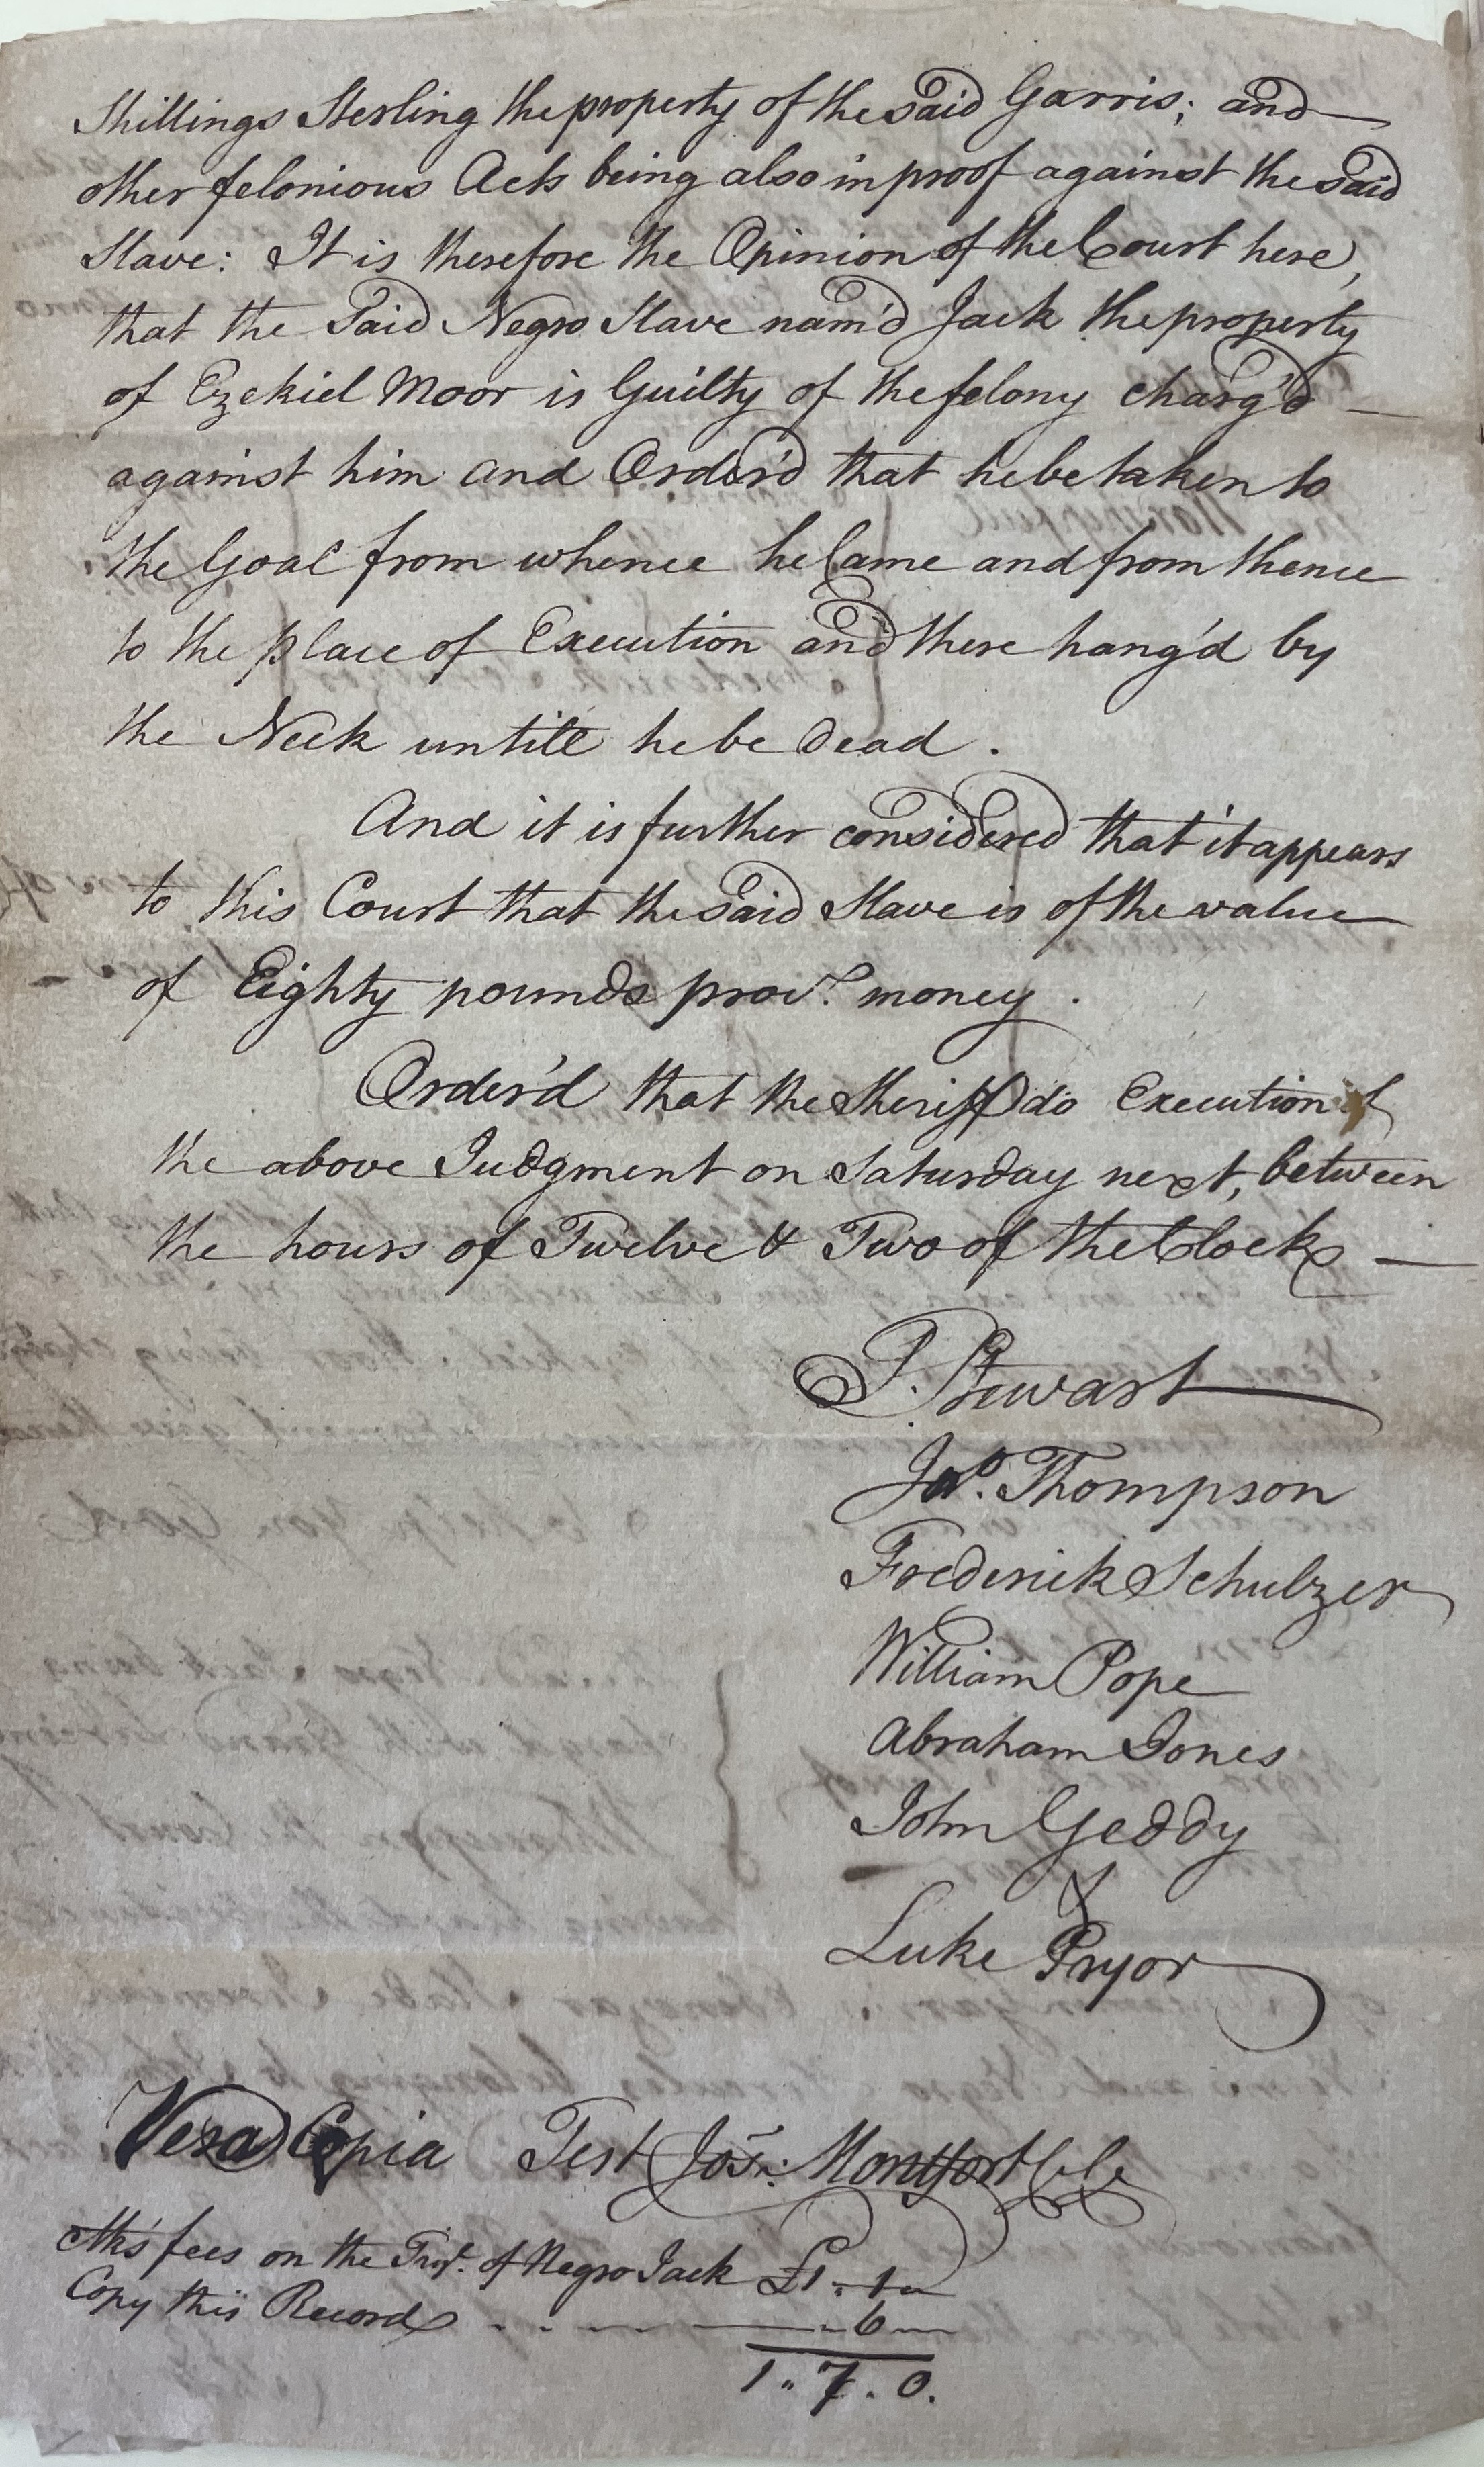 Shillings Sterling the property of the said Garris; and
other felonious Acts being also in proof against the said
Slave: It is therefore the Opinion of the Court here,
that the Said Negro Slave nam'd Jack the property
of Ezekiel Moor is Guilty of the felony charg'd
against him and Order'd that he be taken to
the Goal from whence he Came and from thence
to the place of Execution and there hang'd by
the Neck untill he be dead.
And it is further considered that it appears
to this Court that the said Slave is of the value
of Eighty pounds prov.ᶜ money.
Order'd that the Sheriff do Execution of
the above Judgment on Saturday next, between
the hours of Twelve & Two of the Clock
P. Stewart
Jnᵒ. Thompson
Frederick Schulzer
William Pope
Abraham Jones
John Geddy
&
Luke Pryor
Vera Copia Test Josᵖ: Montfort Cl Ct
Clks fees on the of Negro Jack £1..1
Copy this Record 6
1..7.0.